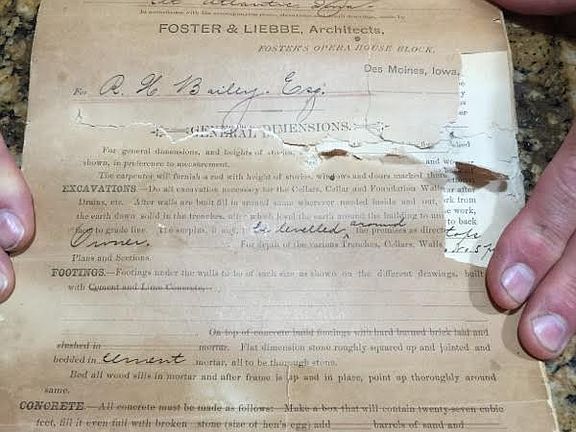 At Atlantic Iowa.
In accordance with
FOSTER & LIEBBE, Architects.
FOSTER'S OPERA HOUSE BLOCK.
Des Moines, Iowa,
For R. H. Bailey. Esq.
GENERAL DIMENSIONS.
For general dimensions, and heights of
shown, in preference to measurement.
The carpenter will furnish a rod with height of stories, windows and doors marked
EXCAVATIONS.—Do all excavation necessary for the Cellars, Cellar and Foundation Walls after
Drains, etc. After walls are built fill in around same wherever needed inside and out, work from
the earth down solid in the trenches, after which level the earth around the building to the work,
feet to grade line. The surplus, if any, to be levelled around the premises as directed to back
Owner. For depth of the various Trenches, Cellars, Walls
Plans and Sections.
FOOTINGS.—Footings under the walls to be of such size as shown on the different drawings, built
with Cement and Lime Concrete,
On top of concrete build footings with hard burned brick laid and
slushed in mortar. Flat dimension stone roughly squared up and jointed and
bedded in Cement mortar, all to be through stone.
Bed all wood sills in mortar and after frame is up and in place, point up thoroughly around
same.
CONCRETE.—All concrete must be made as follows: Make a box that will contain twenty-seven cubic
feet, fill it even full with broken stone (size of hen's egg) add barrels of sand and